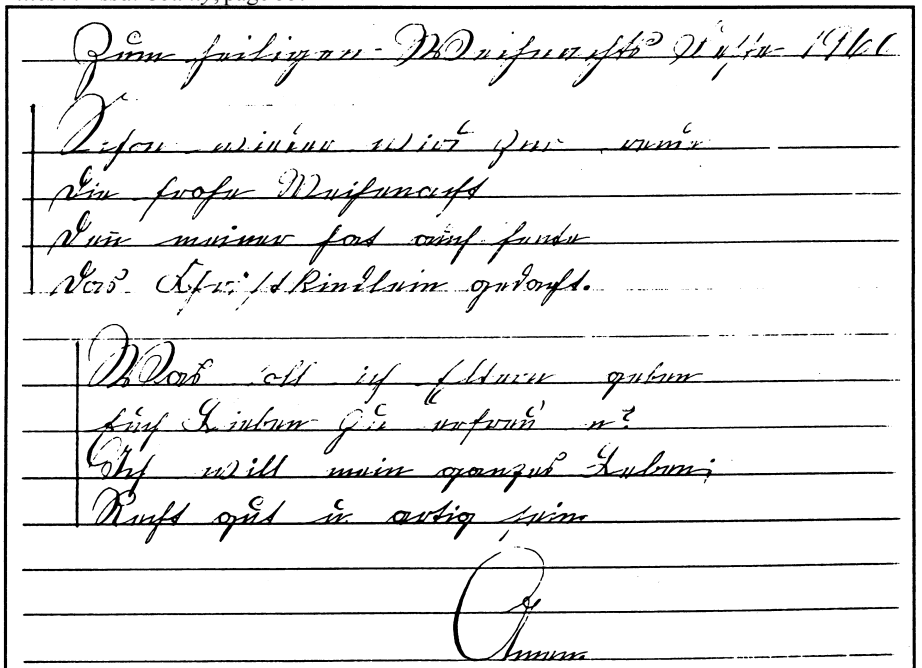 Zum heiligen Weihnachts Feste
Schon wieder wird zur Freude
Die frohe Weihenacht
Den̄ meiner hat auch heute
Das Christkindlein gedacht.
Was soll ich Eltern geben
Euch Lieben zu erfreu'n?
Ich will mein ganzes Leben;
Recht gut u. artig sein
Amen.